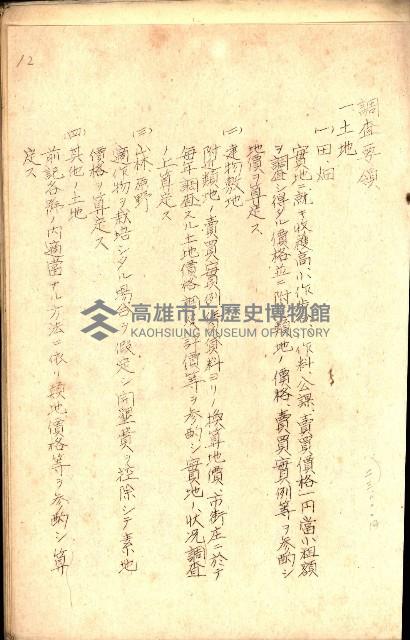 12
調査要領
一土地
(一)田、畑
實地ニ就キ收穫高、小作 作料、公課、賣買價格一円當小租額
ヲ調査シ得タル價格並ニ附 類地ノ價格、賣買實例等ヲ參酌シ
地價ヲ算定ス
(二)建物敷地
附近類地ノ賣買實例 資料ヨリノ換算地價、市街庄ニ於テ
毎年調査スル土地價格 計價等ヲ參酌シ實地ノ状况調査
ノ上算定ス
(三)山林、原野
適作物ヲ栽培シタル場合ヲ假定シ開墾費ヲ控除シテ素地
價格ヲ算定ス
(四)其他ノ土地
前記各 ノ内適當ナル方法ニ依リ換地價格等ヲ參酌シ算
定ス
高雄市立歷史博物館
KAOHSIUNG MUSEUM OF HISTORY